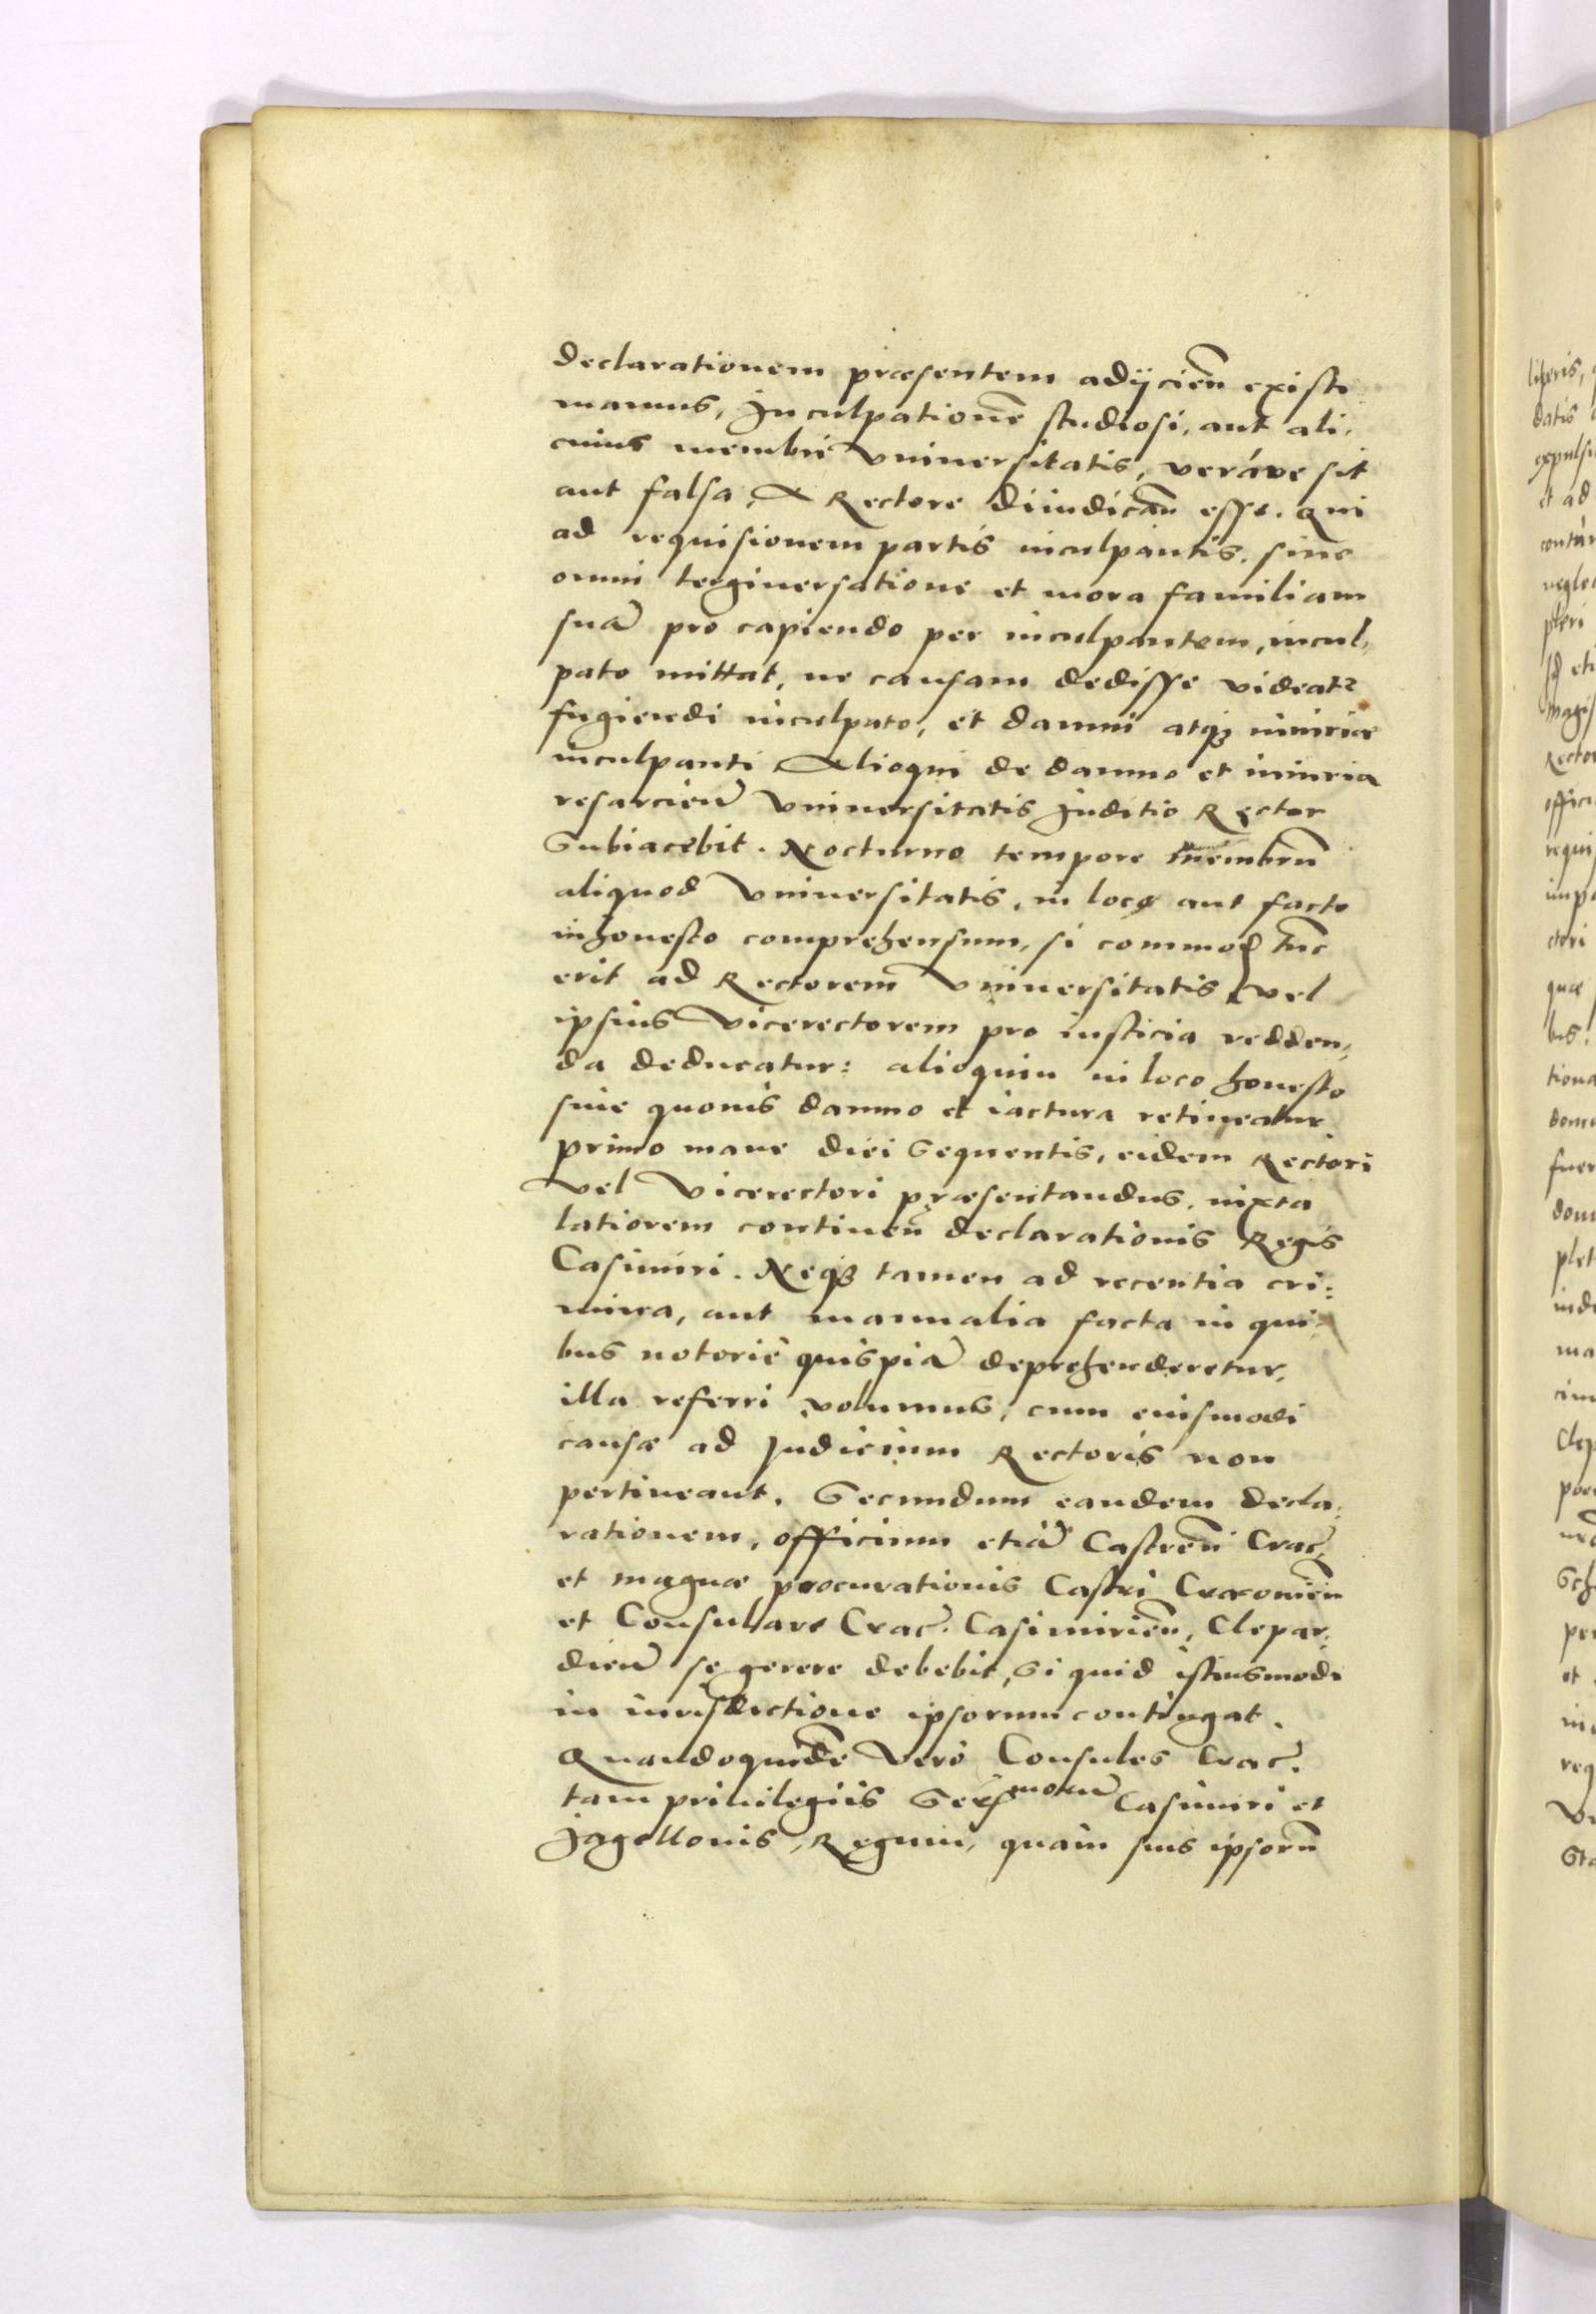 declarationem præsentem adijcien̄ existi
mamus, Inculpationē studiosi, aut ali-
cuius membri Vniuersitatis, veráve sit
aut falsa, A Rectore diiudicān esse. Qui
ad requisionem partis inculpantis, sine
omni tergiuersatione et mora familiam
suā pro capiendo per inculpantem, incul-
pato mittat, ne causam dedisse videatr
fugiendi inculpato, et damni atq; iniuriæ
inculpanti Alioqui de damno et iniuria
resarcien̄ Vniuersitatis Juditio Rector
Subiacebit. Nocturno tempore membrū
aliquod Vniuersitatis, in loco aut facto
inhonesto comprehensum, si commod tūc
erit ad Rectorem Vniuersitatis, vel
ipsius Vicerectorem pro iusticia redden-
da deducatur: alioquin in loco honesto
sine quouis damno et iactura retineatur
primo mane diei Sequentis, eidem Rectori
Vel Vicerectori præsentandus, iuxta
latiorem continen̄ declarationis Regis
Casimiri. Neq; tamen ad recentia cri=
mina, aut manualia facta in qui-
bus notoriè quispiā deprehenderetur,
illa referri volumus, cum eiusmodi
causæ ad Judicium Rectoris non
pertineant. Secundum eandem decla-
rationem, officium etiā Castren̄ Crac̄,
et magnæ procurationis Castri Cracouien̄
et Consulare Crac̄. Casimirien̄, Clepar-
dien̄ se gerere debebit, Si quid istiusmodi
in iurisdictione ipsorum contingat.
Quandoquidē Verò Consules Crac̄.
tam priuilegiis Serᵐᵒʳᵘᵐ Casimiri et
Jagellonis, Regum, quàm suis ipsorū